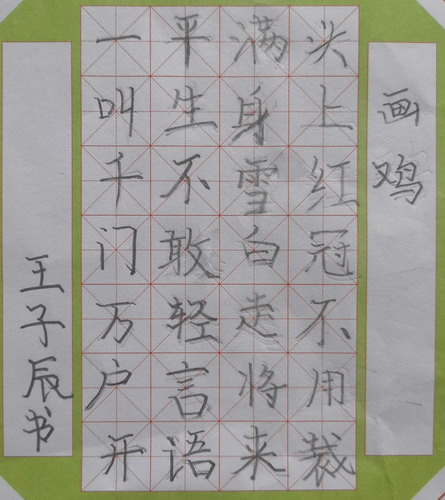 画鸡
头上红冠不用裁
满身雪白走将来
平生不敢轻言语
一叫千门万户开
王子辰书